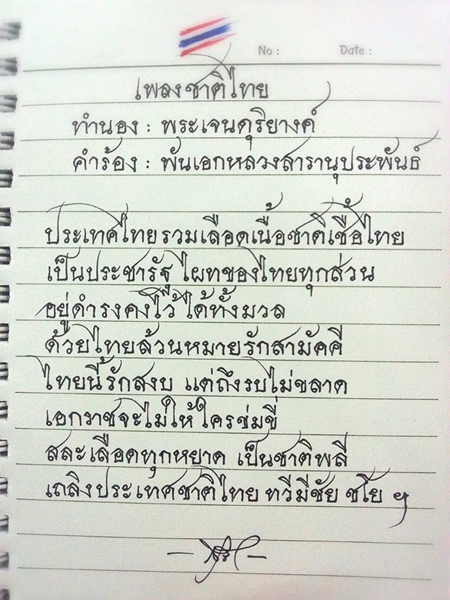 No : Date :
เพลงชาติไทย
ทำนอง : พระเจนดุริยางค์
คำร้อง : พันเอกหลวงสารานุประพันธ์
ประเทศไทยรวมเลือดเนื้อชาติเชื้อไทย
เป็นประชารัฐ ไผทของไทยทุกส่วน
อยู่ดำรงคงไว้ ได้ทั้งมวล
ด้วยไทยล้วนหมายรักสามัคคี
ไทยนี้รักสงบ แต่ถึงรบไม่ขลาด
เอกราชจะไม่ให้ใครข่มขี่
สละเลือดทุกหยาด เป็นชาติพลี
เถลิงประเทศชาติไทย ทวีมีชัย ชโย ฯ